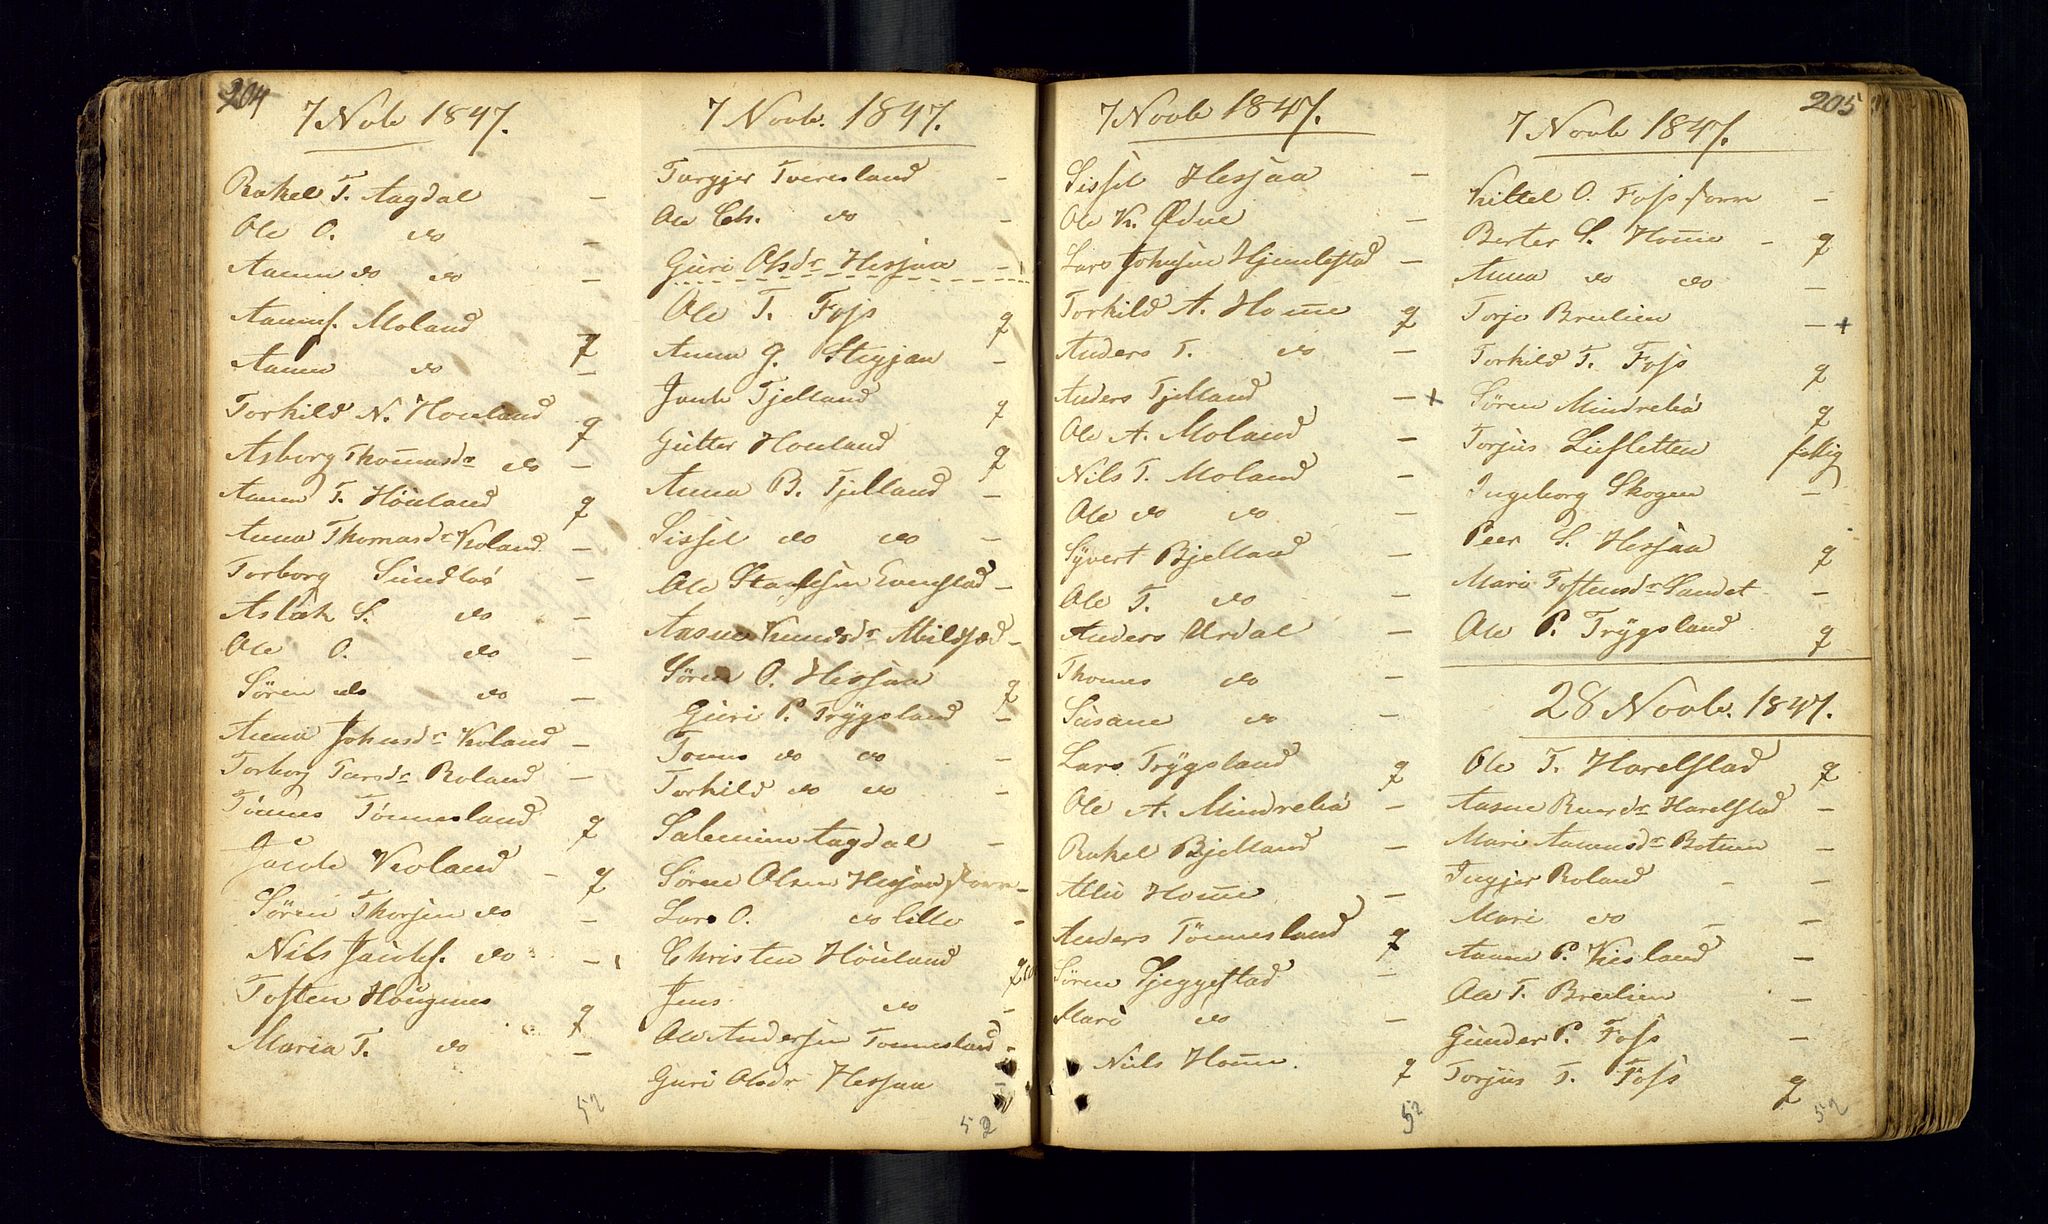 204
7 Novb 1847.
Rakel T. Aagdal -
Ole O. do -
Aanen do do -
Aanens. Moland q
Aanen do -
Torkild N. Houland q
Asborg Thomasdr do -
Aanen T. Houland q
Anna Thomasdr Koland -
Torborg Sundløs -
Aslak S. do -
Ole O. do -
Søren do do -
Anna Johnsdr Koland -
Torborg Tarsdr Roland -
Tønnes Tønnesland q
Jacob Koland - q
Søren Thorsen do -
Nils Jacobs. do -
Tosten Hougnes q
Maria T. do -
52
7 Novb. 1847.
Torgjer Tveresland -
Ole Ch. do -
Guri Olsdr Hessaa -
Ole T. Foss q
Anna G. Stegjan -
Jacob Tjelland q
Gutter Houland q
Anna B. Tjelland -
Sissel do do -
Ole Evenstad -
Aasne Knudsdr -
Søren O. Hessaa q
Guri P. Trygsland -
Tones do do -
Torkild do do -
Salemine Aagdal -
Søren Olsen Hessaa storre -
Lars O. do lille -
Christen Houland q
Jens do -
Ole Andersen Tonnesland -
Guri Olsdr Hessaa -
52
7 Novb 1847.
Sissel Hessaa -
Ole K. Ødne -
Lars Johnsen Hjemlestad -
Torkild A. Home q
Anders T. do -
Anders Tjelland - +
Ole A. Moland -
Nils T. Moland -
Ole do do -
Syvert Bjelland -
Ole T. do -
Anders Urdal -
Thomes do -
Susane do -
Lars Trygsland q
Ole A. Mindrebø -
Rakel Bjelland -
Atlie Home -
Anders Tønnesland q
Søren Tjeggestad -
Mari do -
Nils Home. q
52
205
7 Novb 1847.
Kittel O. Foss storre -
Berter S. Home - q
Anna do do -
Torje Breilien - +
Torkild T. Foss q
Søren Mindrebø q
Torjus Liesletten fattig
Ingeborg Skogen -
Peer S. Hessaa q
Mari Tostensdr Sandet -
Ole P. Trygsland q
28 Novb. 1847.
Ole T. Harelstad q
Aasne Harelstad -
Mari Aanensdr Botnen -
Ingjer Roland - -
Mari do - -
Aanen P. Kisland -
Ole T. Breilien -
Gunder P. Foss -
Torjus T. Foss q
52